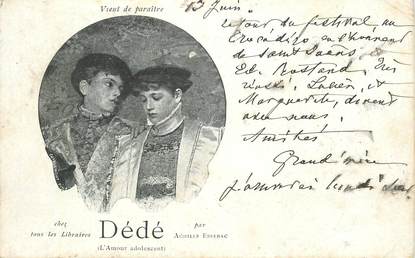 Vient de paraître
13 Juin
retour du festival au
Trocadéro en l'honneur
de Saint Saens et
Ed. Rostand, très
Lucien, et
Marguerite, dinent
avec nous,
Amitiés
Grand'mère
chez
tous les Libraires
Dédé
(L'Amour adolescent)
par
Achille Essebac